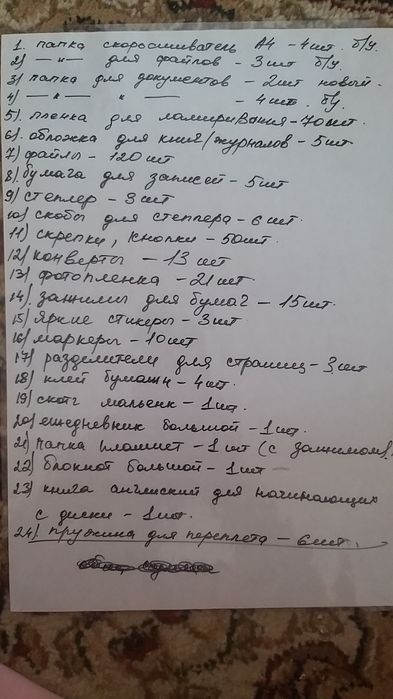 1. папка скоросшиватель А4 - 4шт. б/у.
2) —"— для файлов - 3шт б/у.
3) папка для документов - 2шт новый.
4) —"— " — - 4шт. б/у.
5). пленка для ламинирования - 70шт.
6). обложка для книг/журналов - 5шт
7) файлы - 120шт
8) бумага для записей - 5шт
9) степлер - 3шт
10) скобы для степлера - 6шт.
11) скрепки, кнопки - 50шт.
12) конверты - 13шт
13) фотопленка - 21шт
14) зажимы для бумаг - 15шт.
15) яркие стикеры - 3шт
16) маркеры - 10шт
17) разделители для страниц - 3шт
18) клей бумажн - 4шт.
19) скотч маленьк - 1шт.
20) ежедневник большой - 1шт.
21) папка планшет - 1шт (с зажимом).
22) блокнот большой - 1шт
23) книга английский для начинающих
с диски - 1шт.
24). пружина для переплета - 6шт.